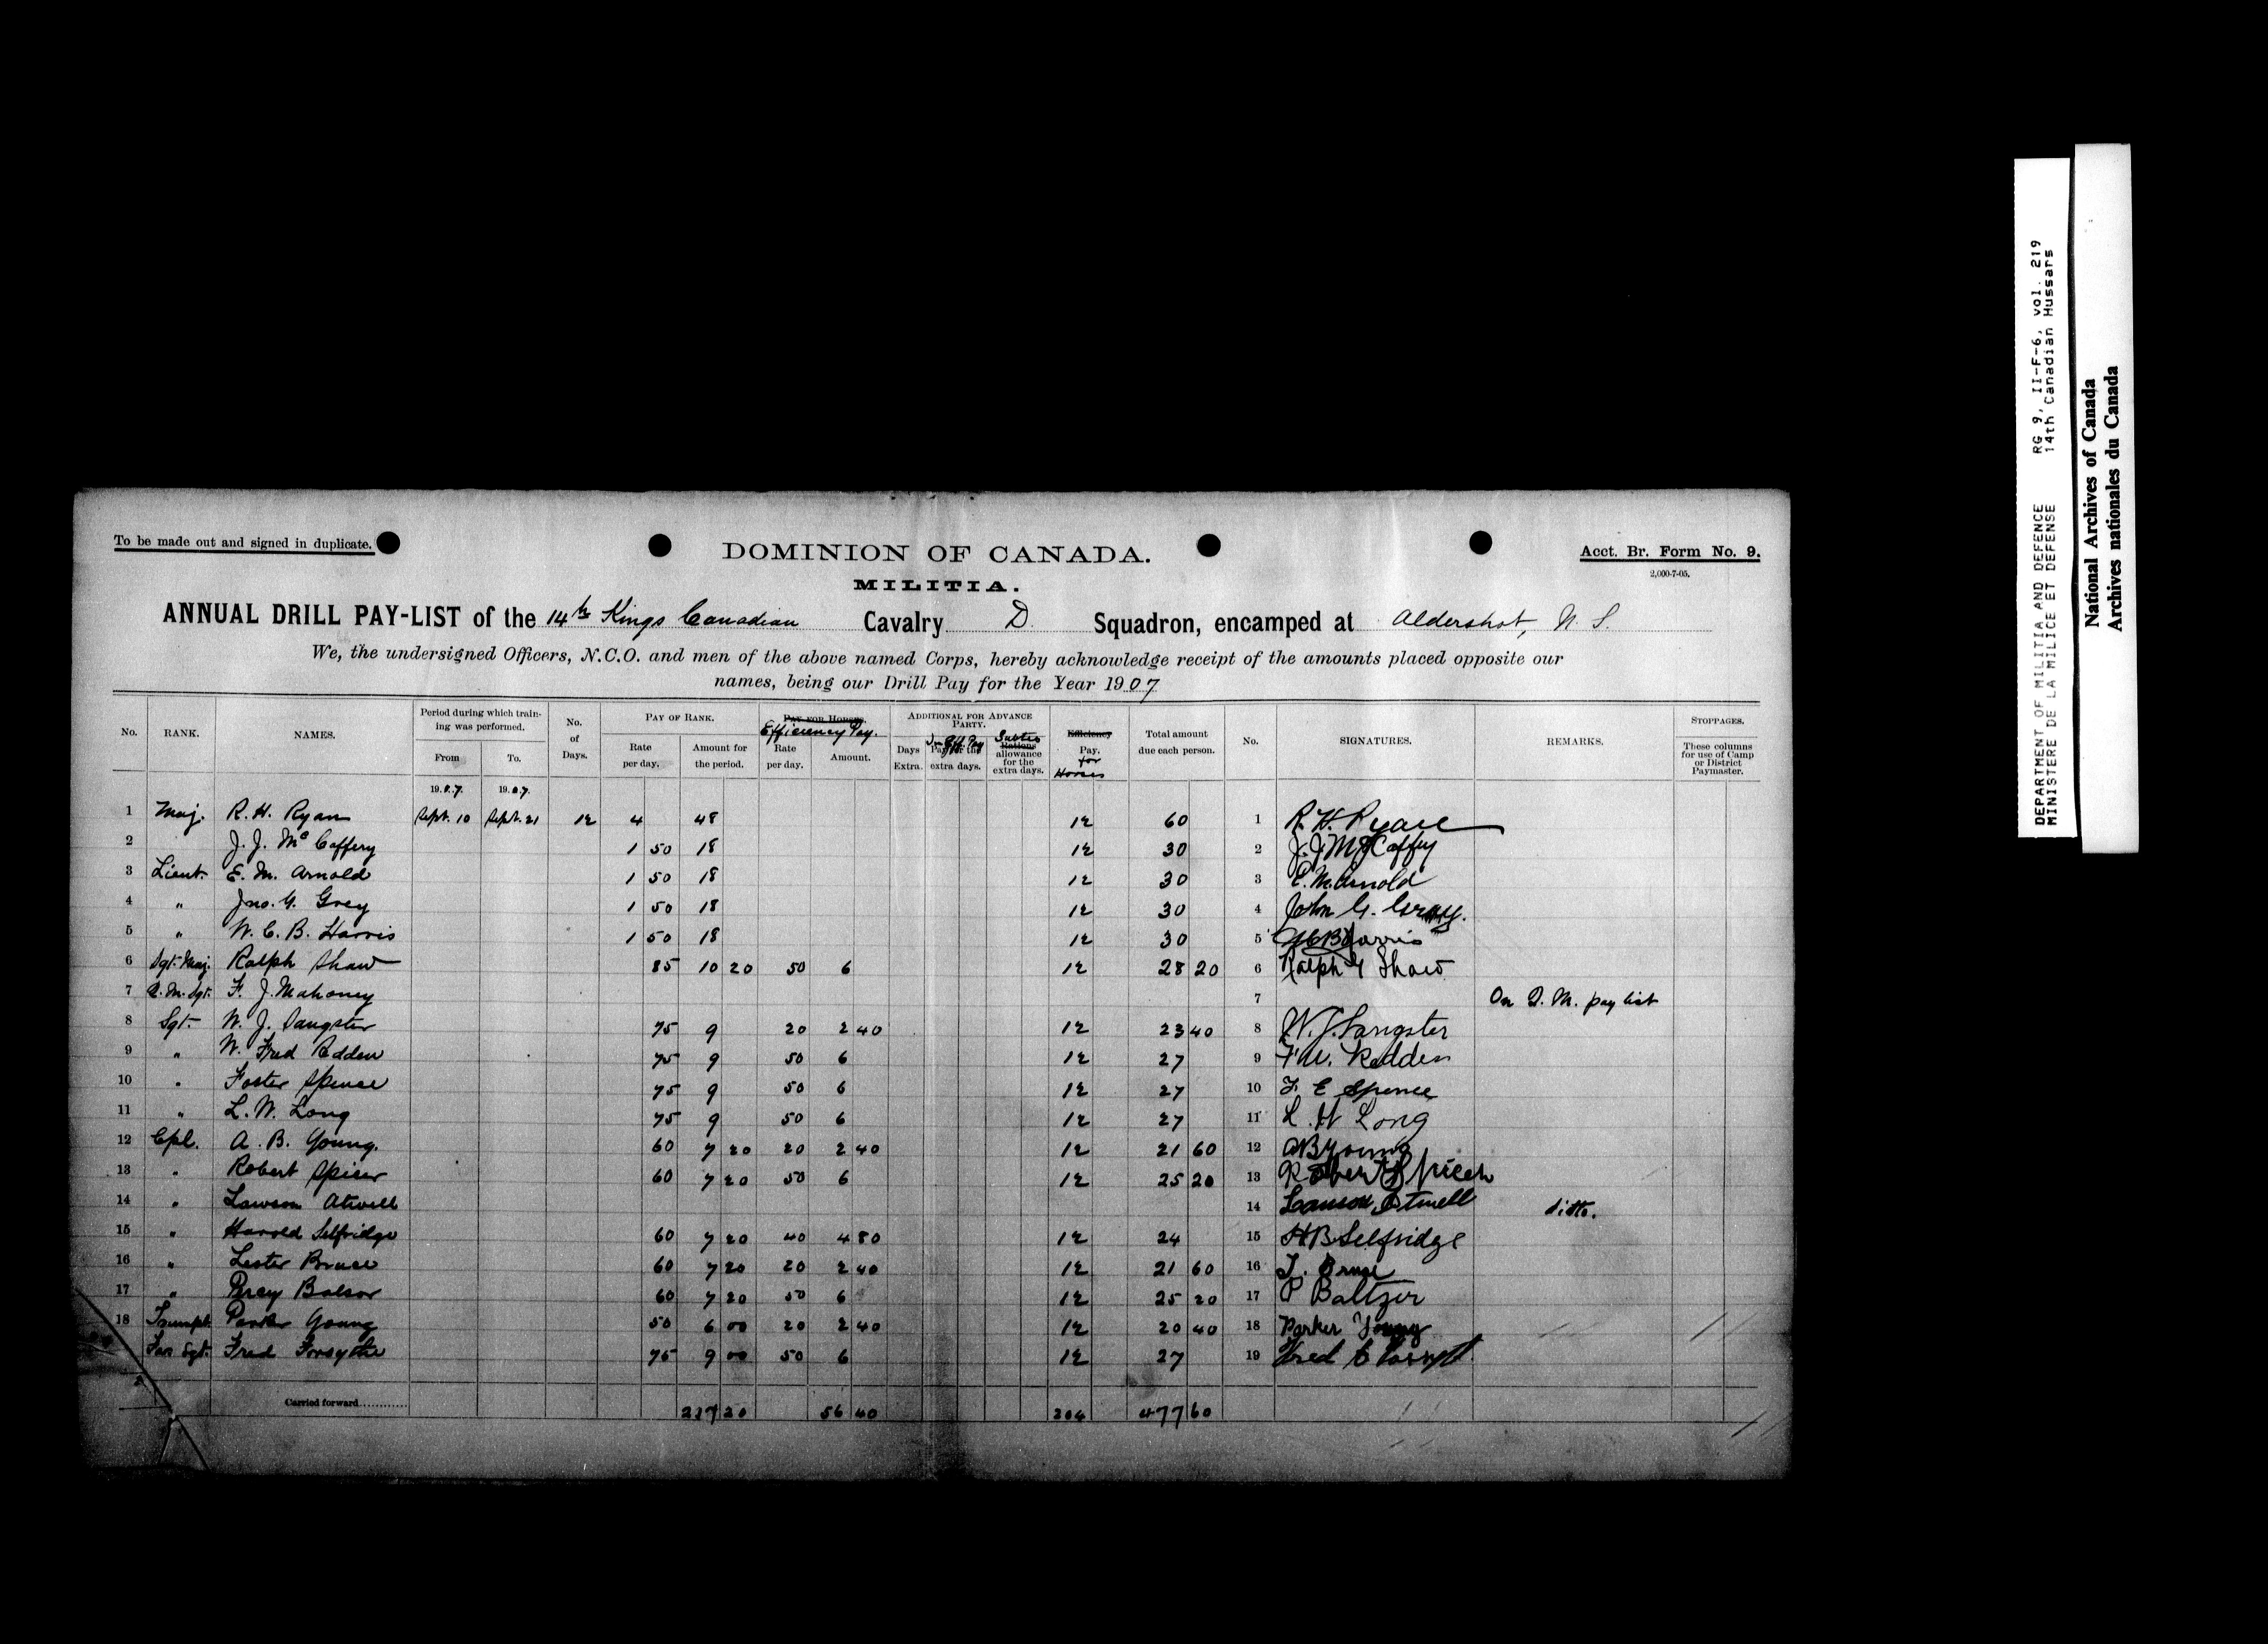 To be made out and signed in duplicate.
DOMINION OF CANADA.
Acct. Br. Form No. 9.
2,000-7-05.
MILITIA.
ANNUAL DRILL PAY-LIST of the 14th Kings Canadian Cavalry D. Squadron, encamped at Aldershot, N. S.
We, the undersigned Officers, N.C.O. and men of the above named Corps, hereby acknowledge receipt of the amounts placed opposite our
names, being our Drill Pay for the Year 1907
No. RANK. NAMES. Period during which training was performed. From To. No. of Days. PAY OF RANK. Rate per day. Amount for the period. PAY FOR HORSES. Efficiency Pay. Rate per day. Amount. ADDITIONAL FOR ADVANCE PARTY. Days Extra. Pay for the extra days. Subtes Rations allowance for the extra days. Efficiency Pay. for Horses Total amount due each person. No. SIGNATURES. REMARKS. STOPPAGES. These columns for use of Camp or District Paymaster.
19.0.7. 19.0.7.
1 Maj. R. H. Ryan Sept. 10 Sept. 21 12 4 48 12 60 1 R. H. Ryan
2 J. J. McCaffery 1 50 18 12 30 2 J. J. McCaffry
3 Lieut. E. M. Arnold 1 50 18 12 30 3 E. M. Arnold
4 " Jno. G. Grey 1 50 18 12 30 4 John G. Gray.
5 " W. C. B. Harris 1 50 18 12 30 5 WCB Harris
6 Sgt. Maj. Ralph Shaw 85 10 20 50 6 12 28 20 6 Ralph Shaw
7 Q. M. Sgt. F. J. Mahoney 7 On Q. M. pay list
8 Sgt. W. J. Sangster 75 9 20 2 40 12 23 40 8 W. J. Sangster
9 " W. Fred Redden 75 9 50 6 12 27 9 F W. Redden
10 " Foster Spence 75 9 50 6 12 27 10 F. E Spence
11 " L. W. Long 75 9 50 6 12 27 11 L. W Long
12 Cpl. A. B. Young. 60 7 20 20 2 40 12 21 60 12 AB Young
13 " Robert Spicer 60 7 20 50 6 12 25 20 13 Robert Spicer
14 " Lawson Atwell 14 Lawson Atwell ditto.
15 " Harold Selfridge 60 7 20 40 4 80 12 24 15 H B Selfridge
16 " Lester Bruce 60 7 20 20 2 40 12 21 60 16 L. Bruce
17 " Percy Balsor 60 7 20 50 6 12 25 20 17 P Baltzer
18 Trumpt. Parker Young 50 6 00 20 2 40 12 20 40 18 Parker Young
Far Sgt. Fred Forsythe 75 9 00 50 6 12 27 19 Fred
Carried forward............ 217 20 56 40 204 477 60
DEPARTMENT OF MILITIA AND DEFENCE RG 9, II-F-6, vol. 219
MINISTERE DE LA MILICE ET DEFENSE 14th Canadian Hussars
National Archives of Canada
Archives nationales du Canada